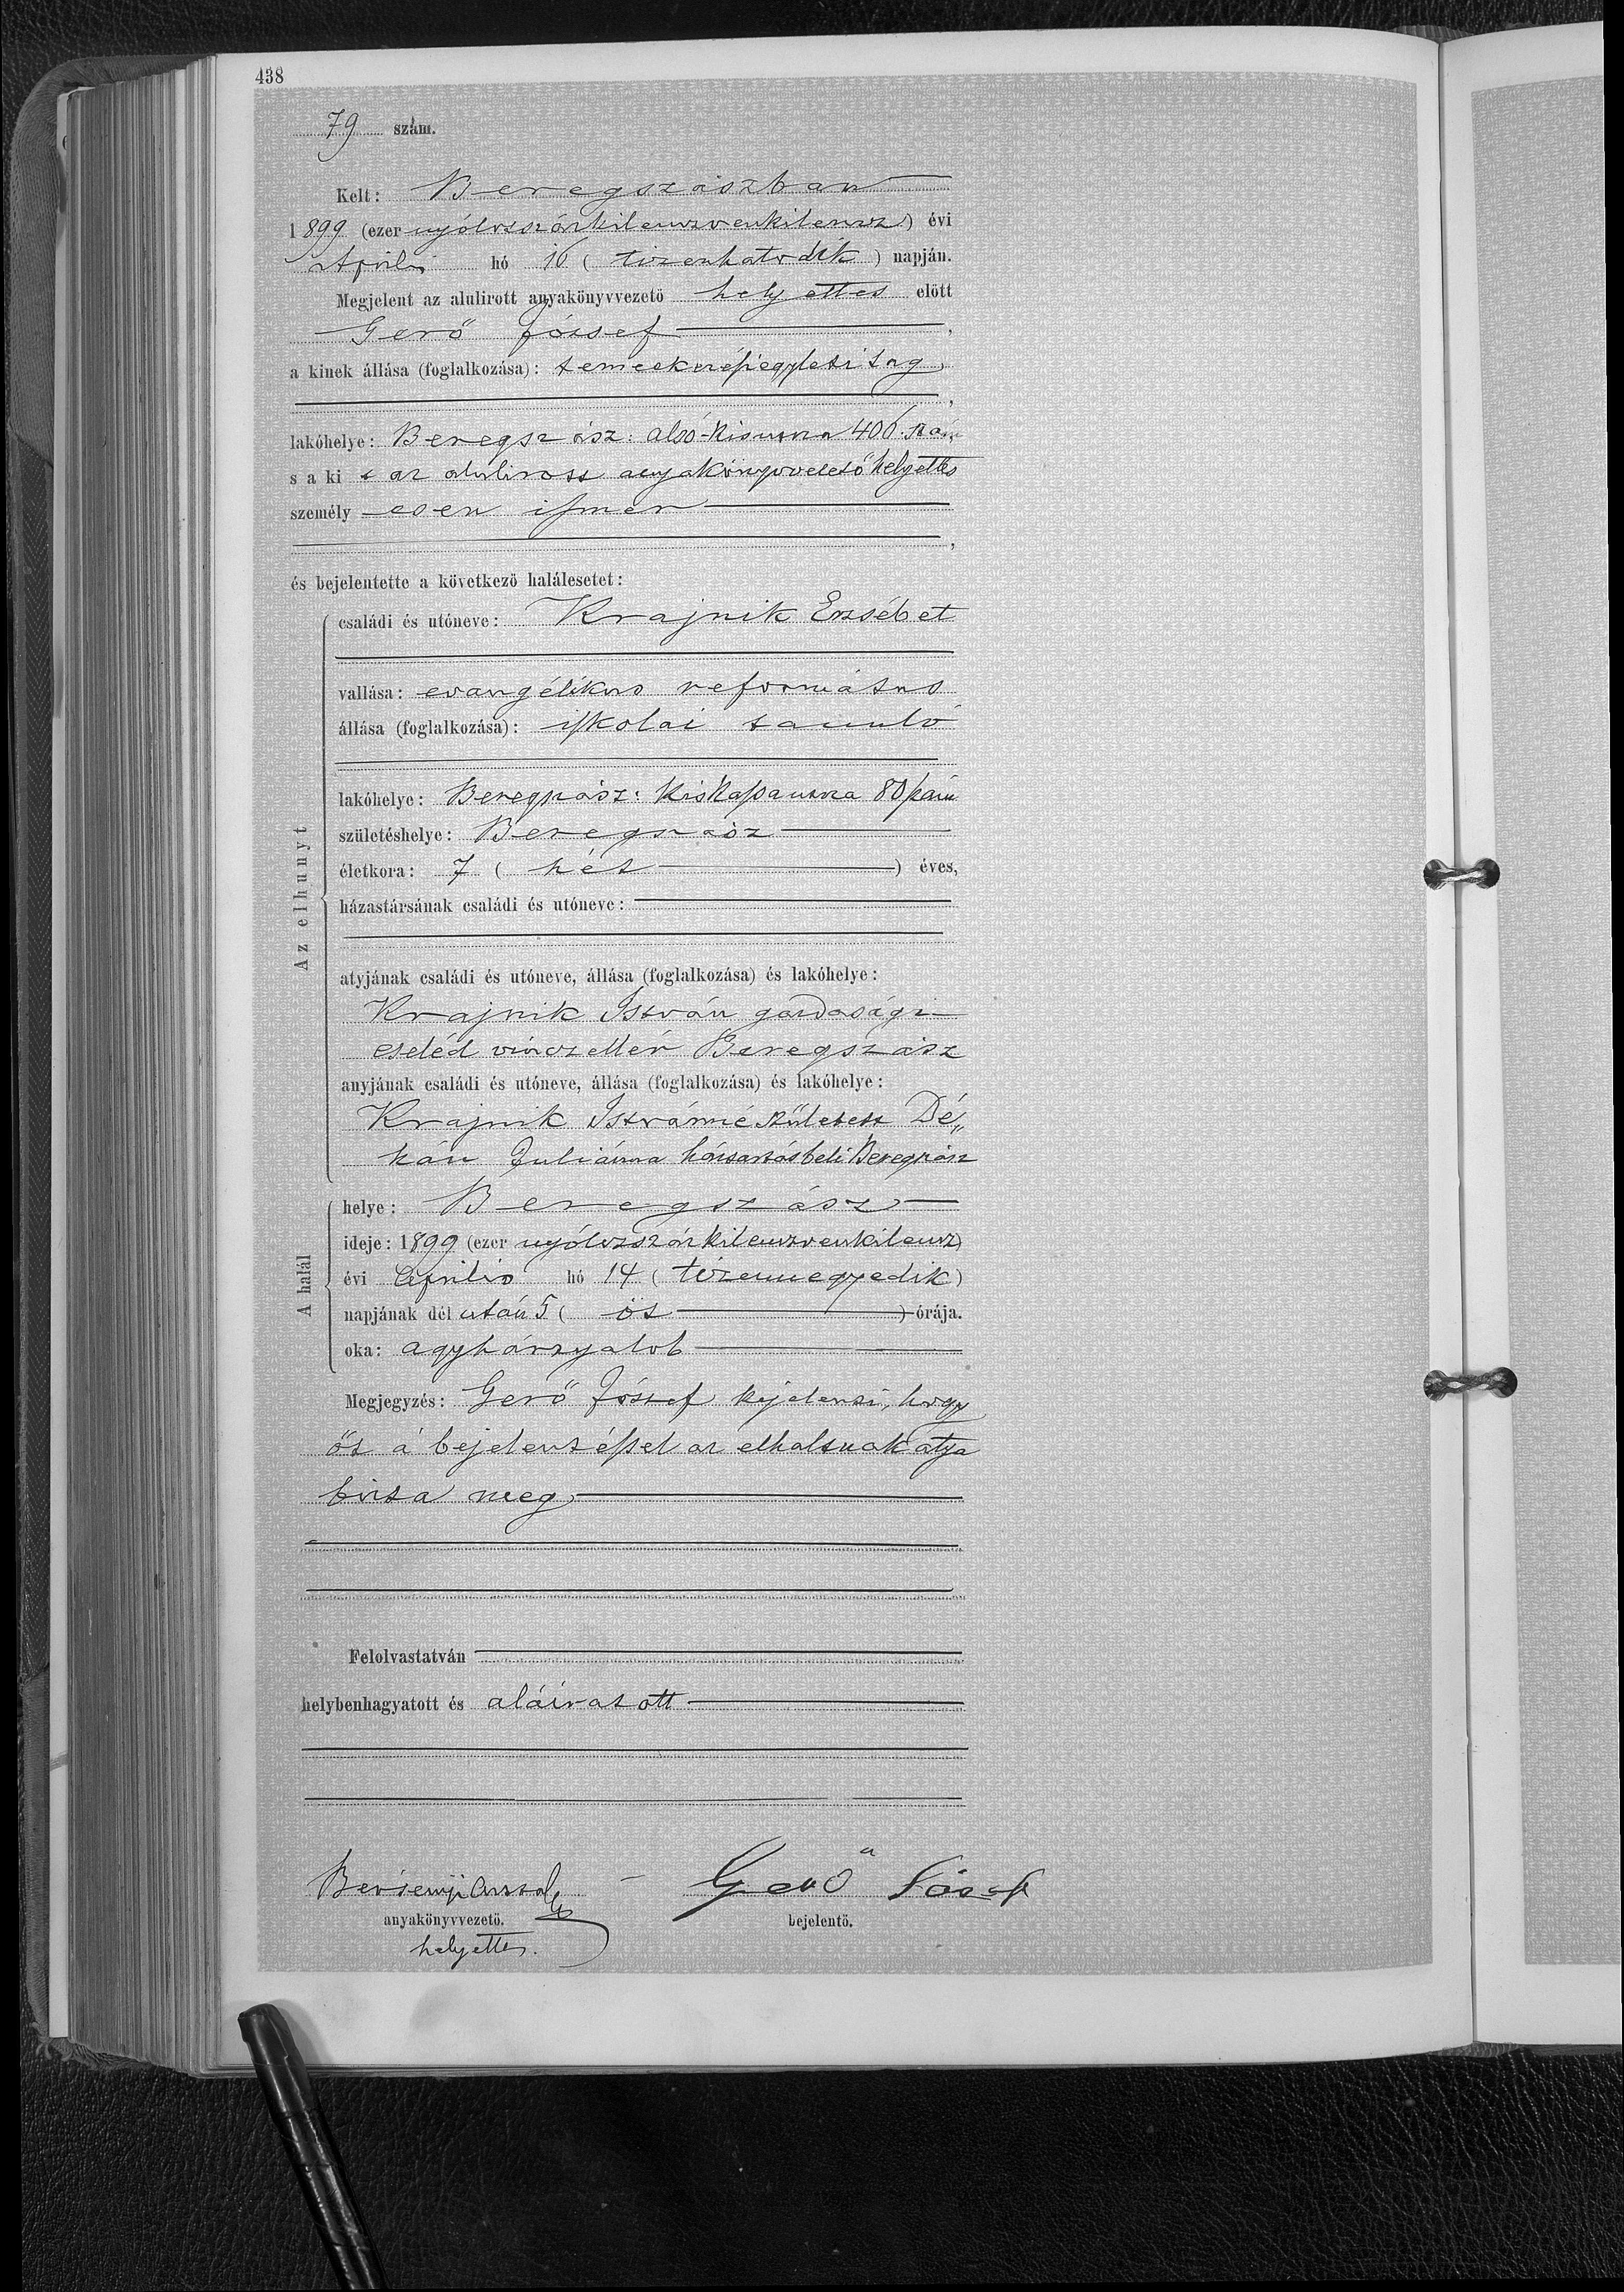 438
79 szám.
Kelt: Beregszászban
1899 (ezer nyólczszázkilenczvenkilencz) évi
Április hó 16 (tizenhatodik) napján.
Megjelent az alulirott anyakönyvvezető helyettes előtt
Gerő József,
a kinek állása (foglalkozása): temetkezési egyleti tag,
lakóhelye: Beregszász: alsó-kisutcza 406. szám
s a ki t az alulirott anyakönyvvezető helyettes
személyesen ismer,
és bejelentette a következő halálesetet:
Az elhunyt
családi és utóneve: Krajnik Erzsébet
vallása: evangélikus református
állása (foglalkozása): iskolai tanuló
lakóhelye: Beregszász: kiskapautcza 80 szám
születéshelye: Beregszász
életkora: 7 (hét) éves,
házastársának családi és utóneve:
atyjának családi és utóneve, állása (foglalkozása) és lakóhelye:
Krajnik István gazdasági
cseléd vinczellér Beregszász
anyjának családi és utóneve, állása (foglalkozása) és lakóhelye:
Krajnik Istvánné született Dé„
kán Juliánna háztartásbeli Beregszász
A halál
helye: Beregszász
ideje: 1899 (ezer nyólczszázkilenczvenkilencz)
évi Április hó 14 (tizennegyedik)
napjának dél után 5 (öt) órája.
oka: agyhártyalob
Megjegyzés: Gerő József kijelenti, hogy
őt a bejelentéssel az elhaltnak atyja
bizta meg,
Felolvastatván
helybenhagyatott és aláiratott
anyakönyvvezető.
helyettes.
Gerő József
bejelentő.